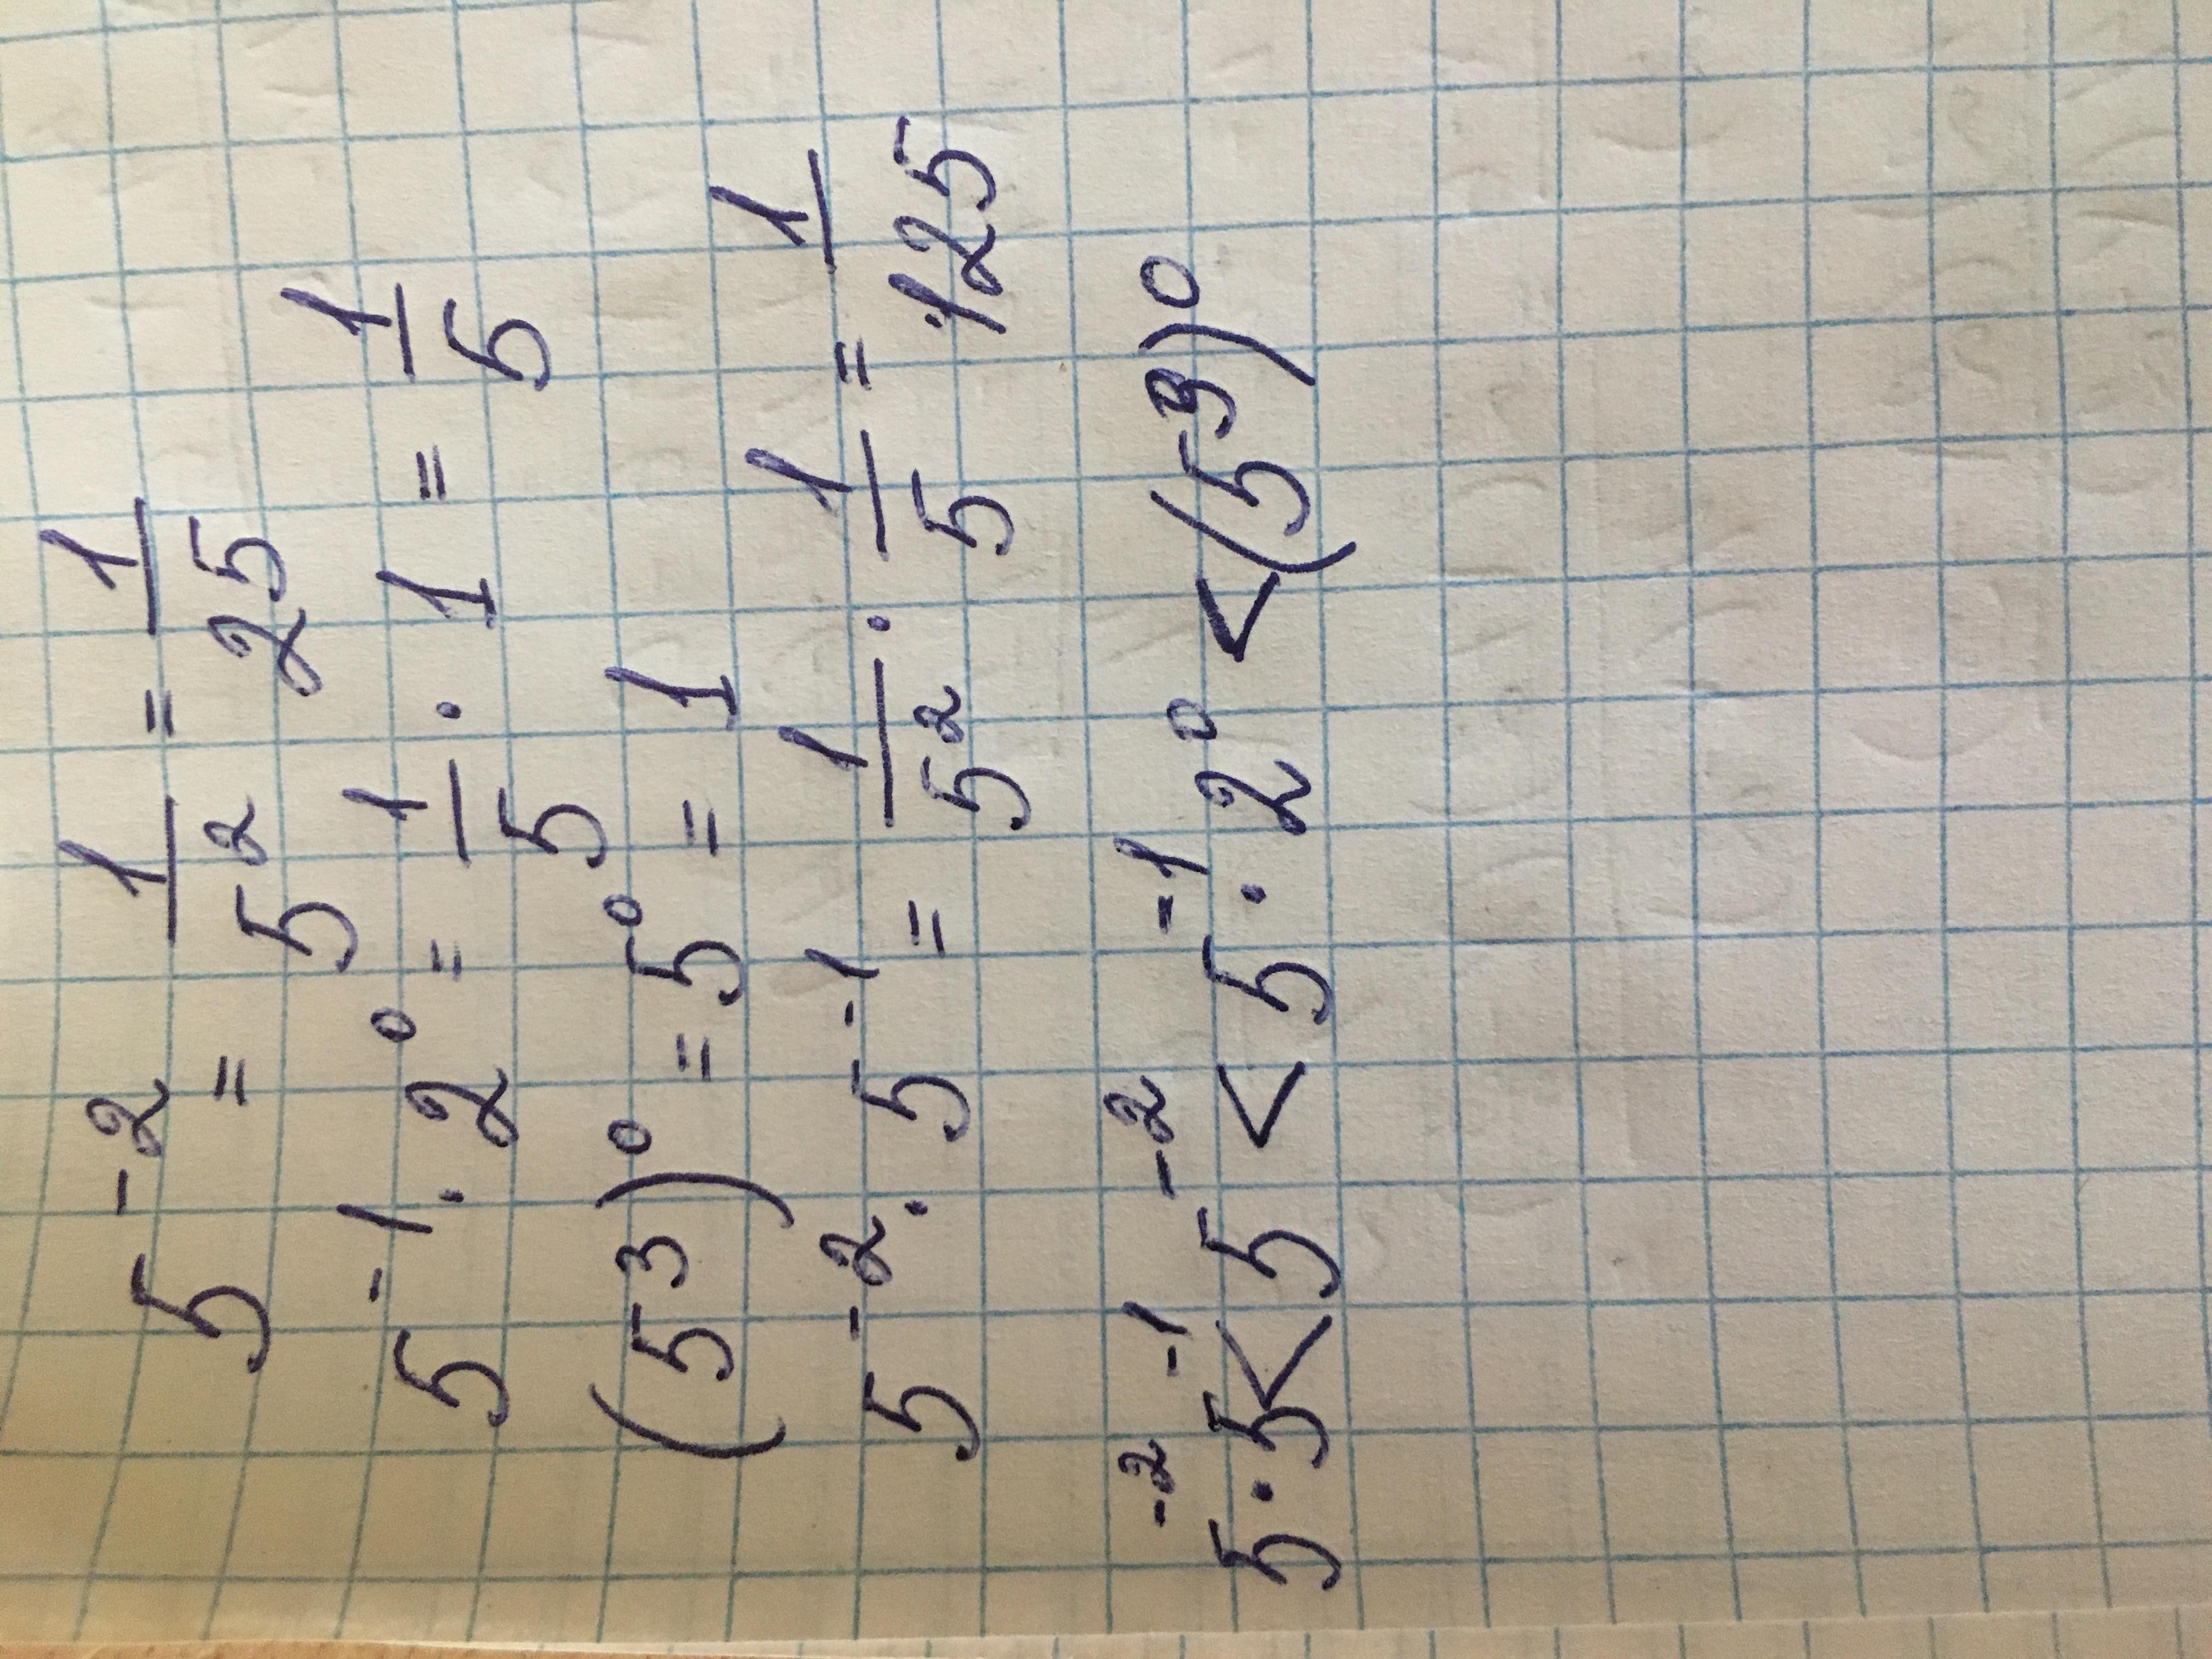 5⁻² = 1/5² = 1/25
5⁻¹ · 2⁰ = 1/5 · 1 = 1/5
(5³)⁰ = 5⁰ = 1
5⁻² · 5⁻¹ = 1/5² · 1/5 = 1/125
5⁻² · 5⁻¹ < 5⁻² < 5⁻¹ · 2⁰ < (5³)⁰